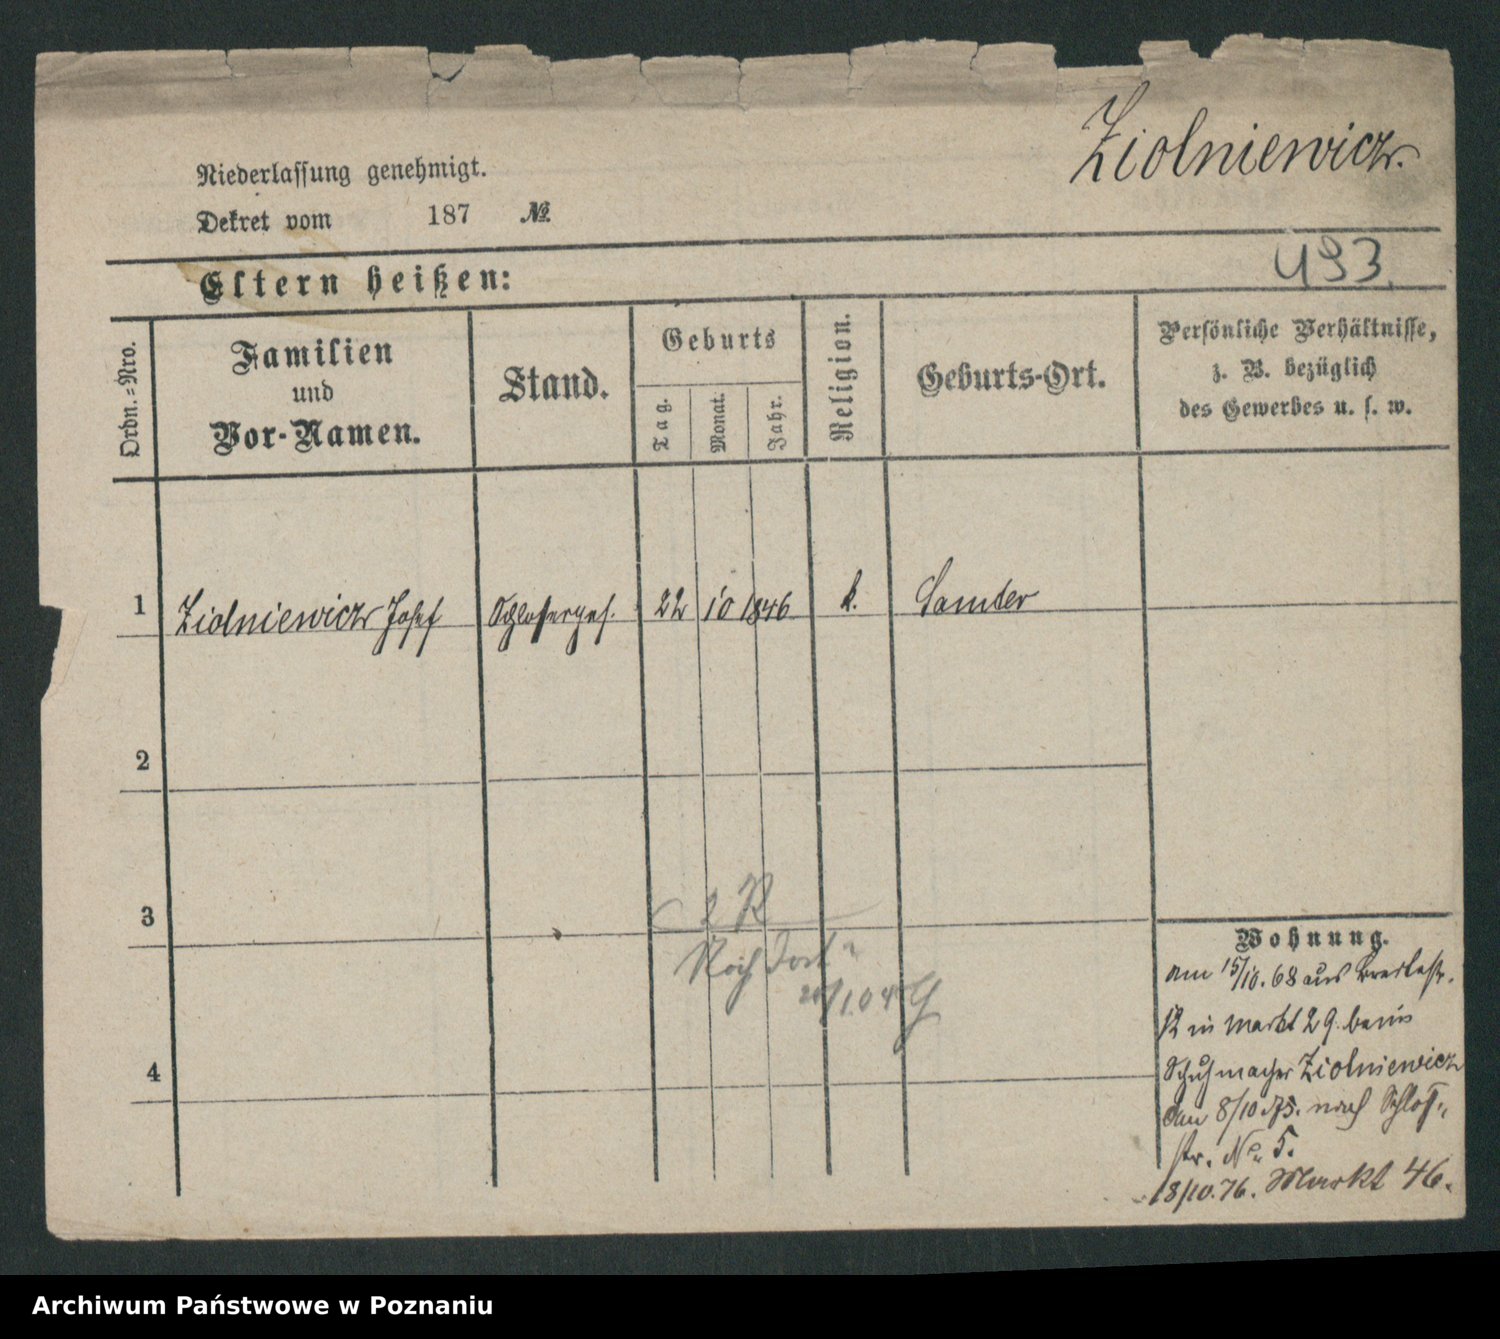 Ziolniewicz.
Niederlassung genehmigt.
Dekret vom 187 №
493.
Eltern heißen:
Ordn.-Nro.
Familien
und
Vor-Namen.
Stand.
Geburts
Tag.
Monat.
Jahr.
Religion.
Geburts-Ort.
Persönliche Verhältnisse,
z. B. bezüglich
des Gewerbes u. s. w.
1 Ziolniewicz Josef Schlosserges. 22 10 1846 k. Samter
2
3
2 R
Noch dort
4
Wohnung.
am 15/10. 68 aus Breslastr.
12 in Markt 29. beim
Schuhmacher Ziolniewicz
den 8/10 75. nach Schloß-
str. No 5.
18/10. 76. Markt 46.
Archiwum Państwowe w Poznaniu